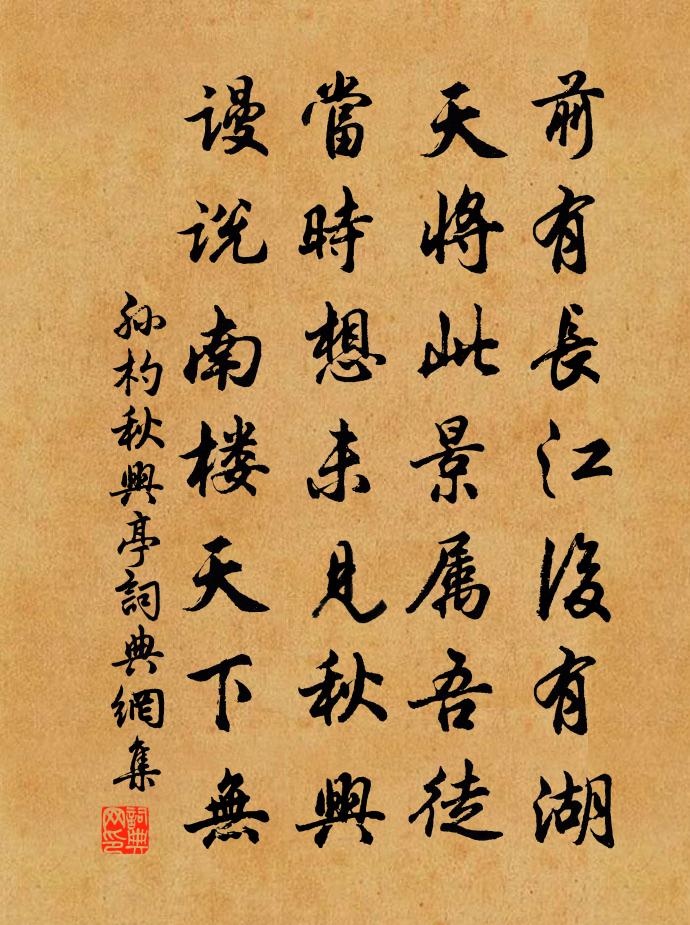 前有長江後有湖
天將此景属吾徒
當時想未見秋興
谩说南楼天下無
孙杓秋興亭詞典網集
詞典网印